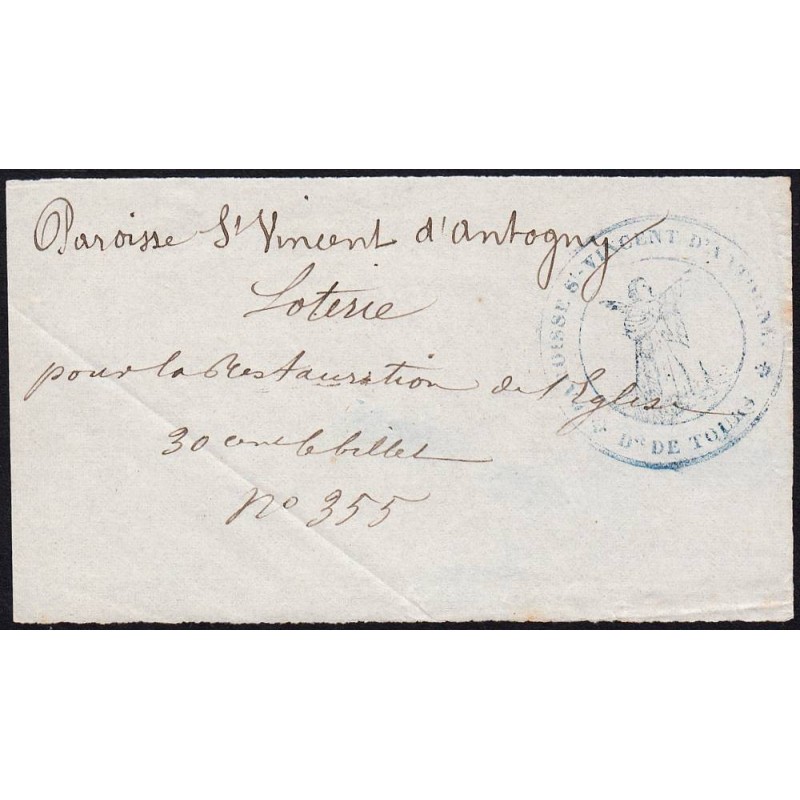 Paroisse St Vincent d'Antogny
Loterie
pour la Restauration de l'Eglise
30 cent le billet
No 355
PAROISSE St-VINCENT D'ANTOGNY
Dse DE TOURS